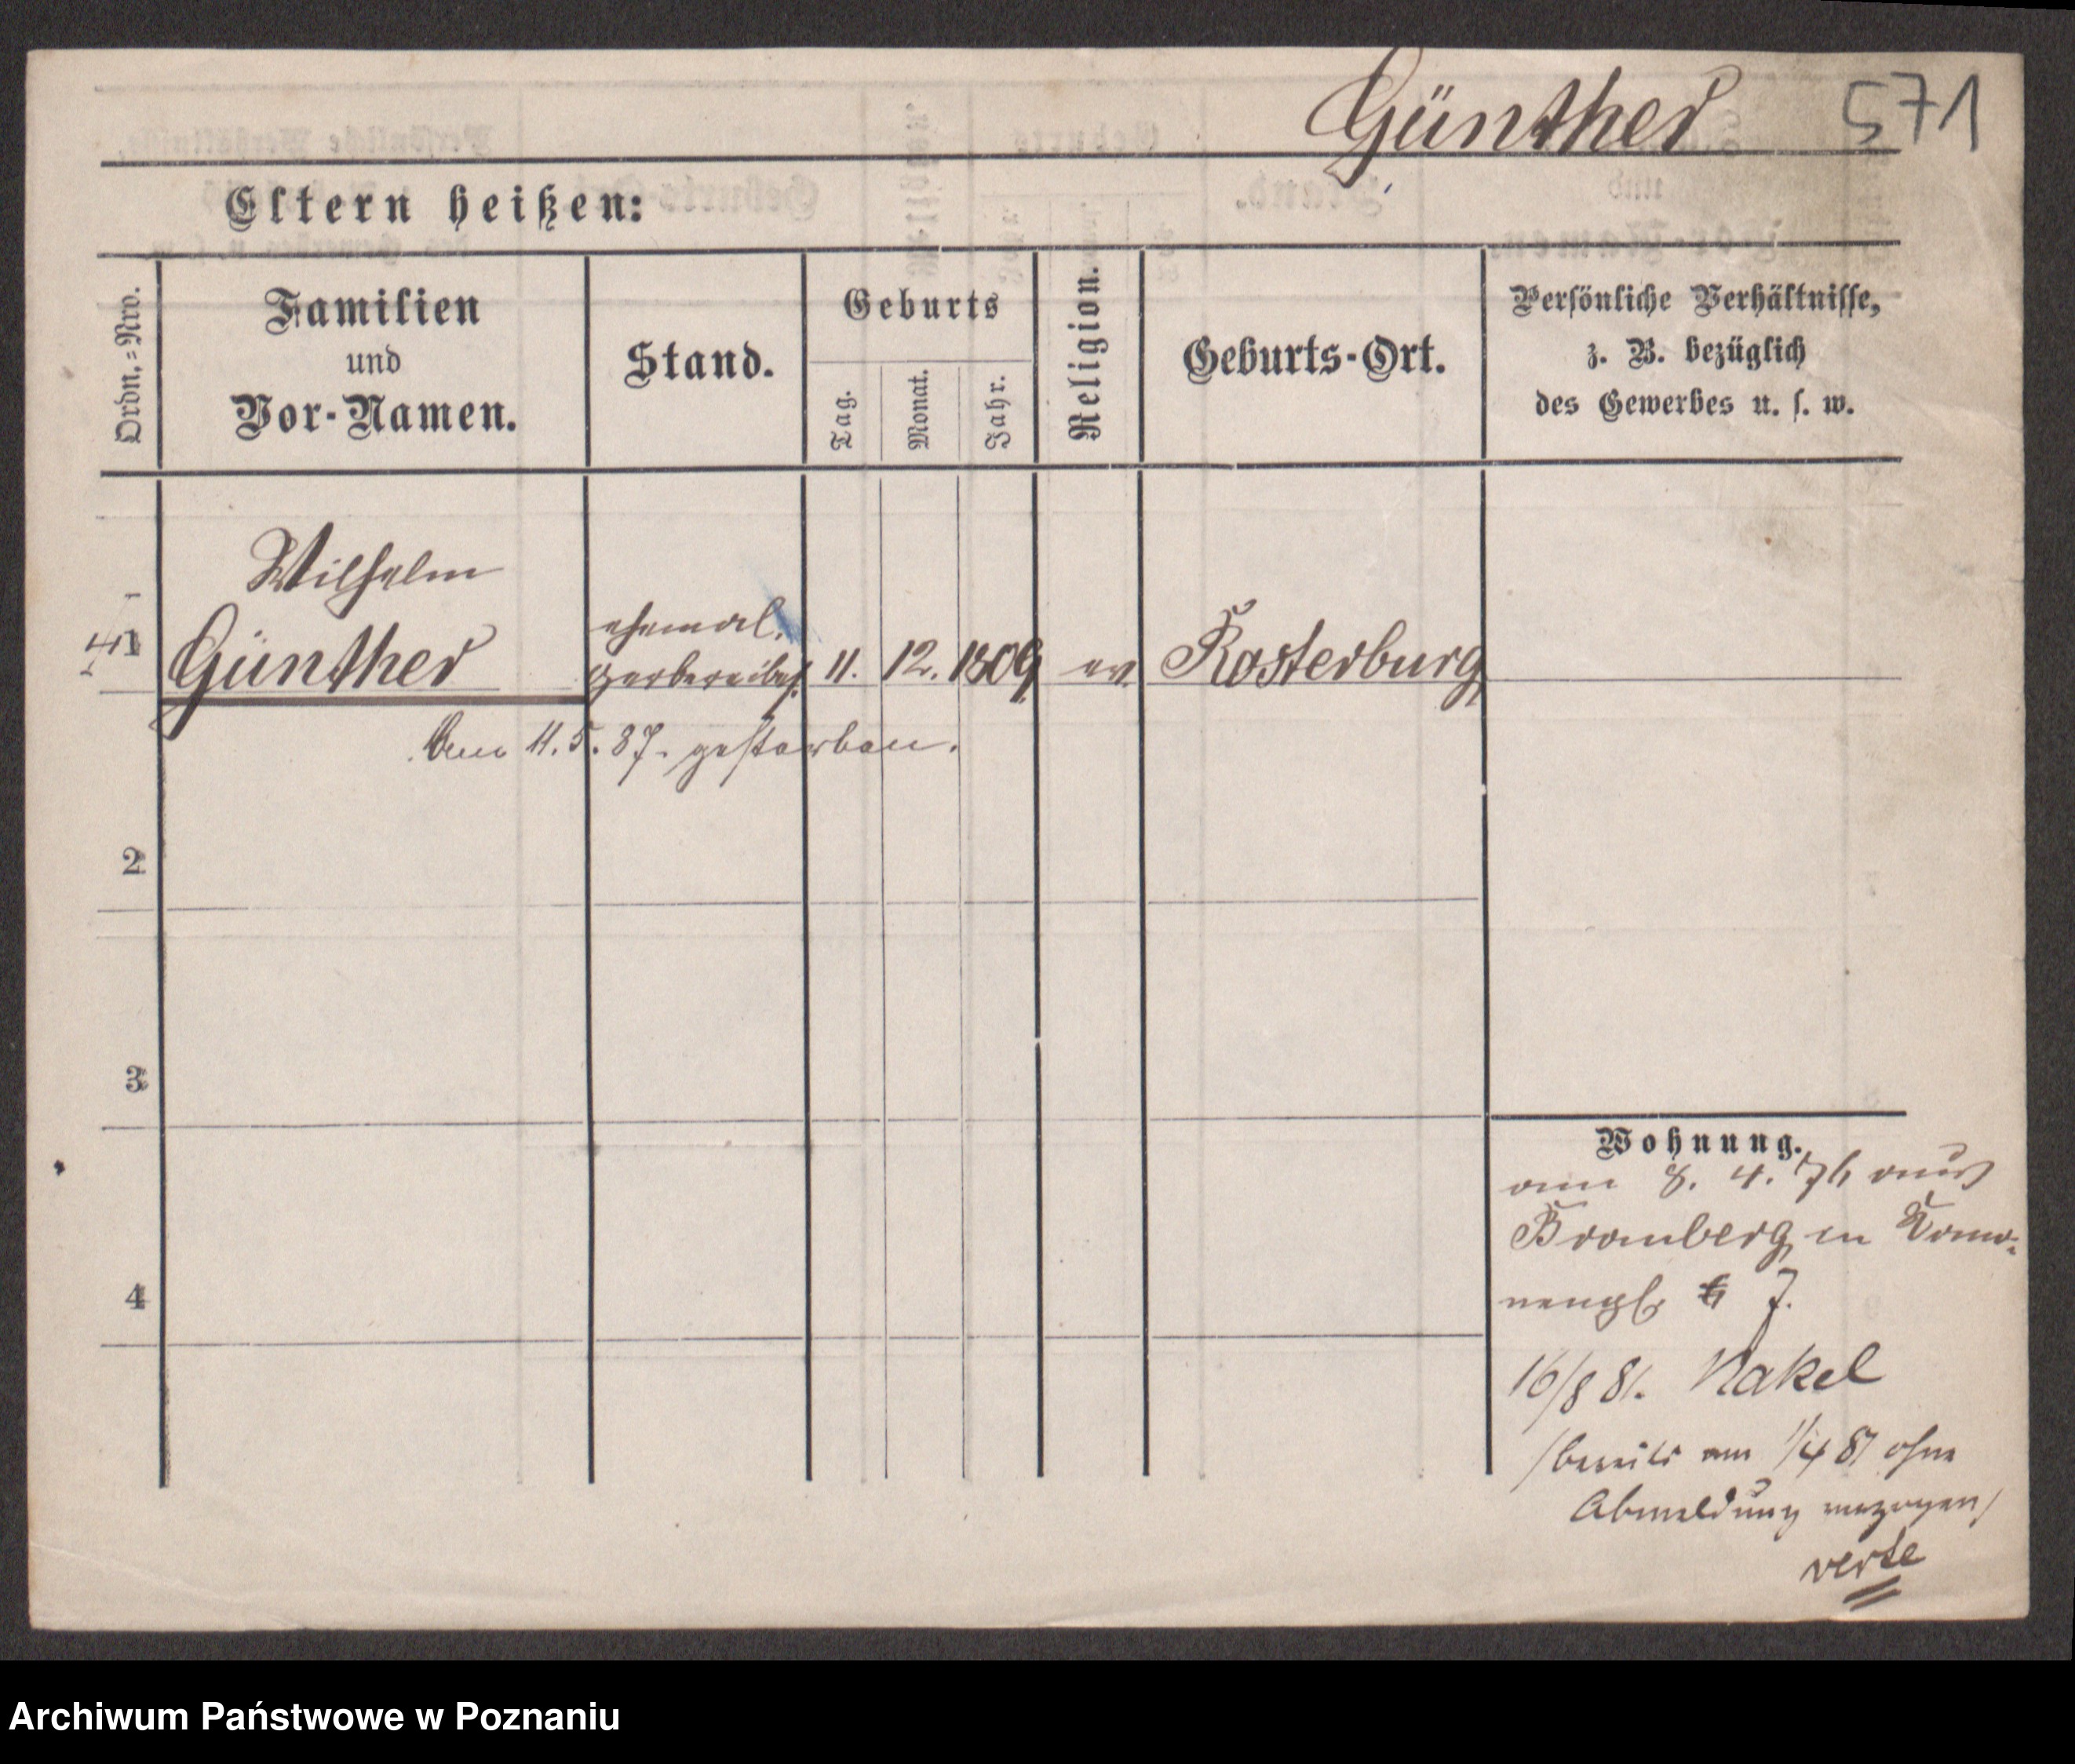 Günther 571
Eltern heißen:
Ordn.=Nro.
Familien
und
Vor-Namen.
Stand.
Geburts
Tag.
Monat.
Jahr.
Religion.
Geburts-Ort.
Persönliche Verhältnisse,
z. B. bezüglich
des Gewerbes u. s. w.
Wilhelm
1 Günther
ehemal.
Gerbereibes. 11. 12. 1809 ev. Rosterburg
Am 11. 5. 87. gestorben.
2
3
4
Wohnung.
am 8. 4. 76 aus
Bromberg in
7.
16/8 81. Nakel
/bereits am 1/4 81 ohne
Abmeldung verzogen/
verte
Archiwum Państwowe w Poznaniu